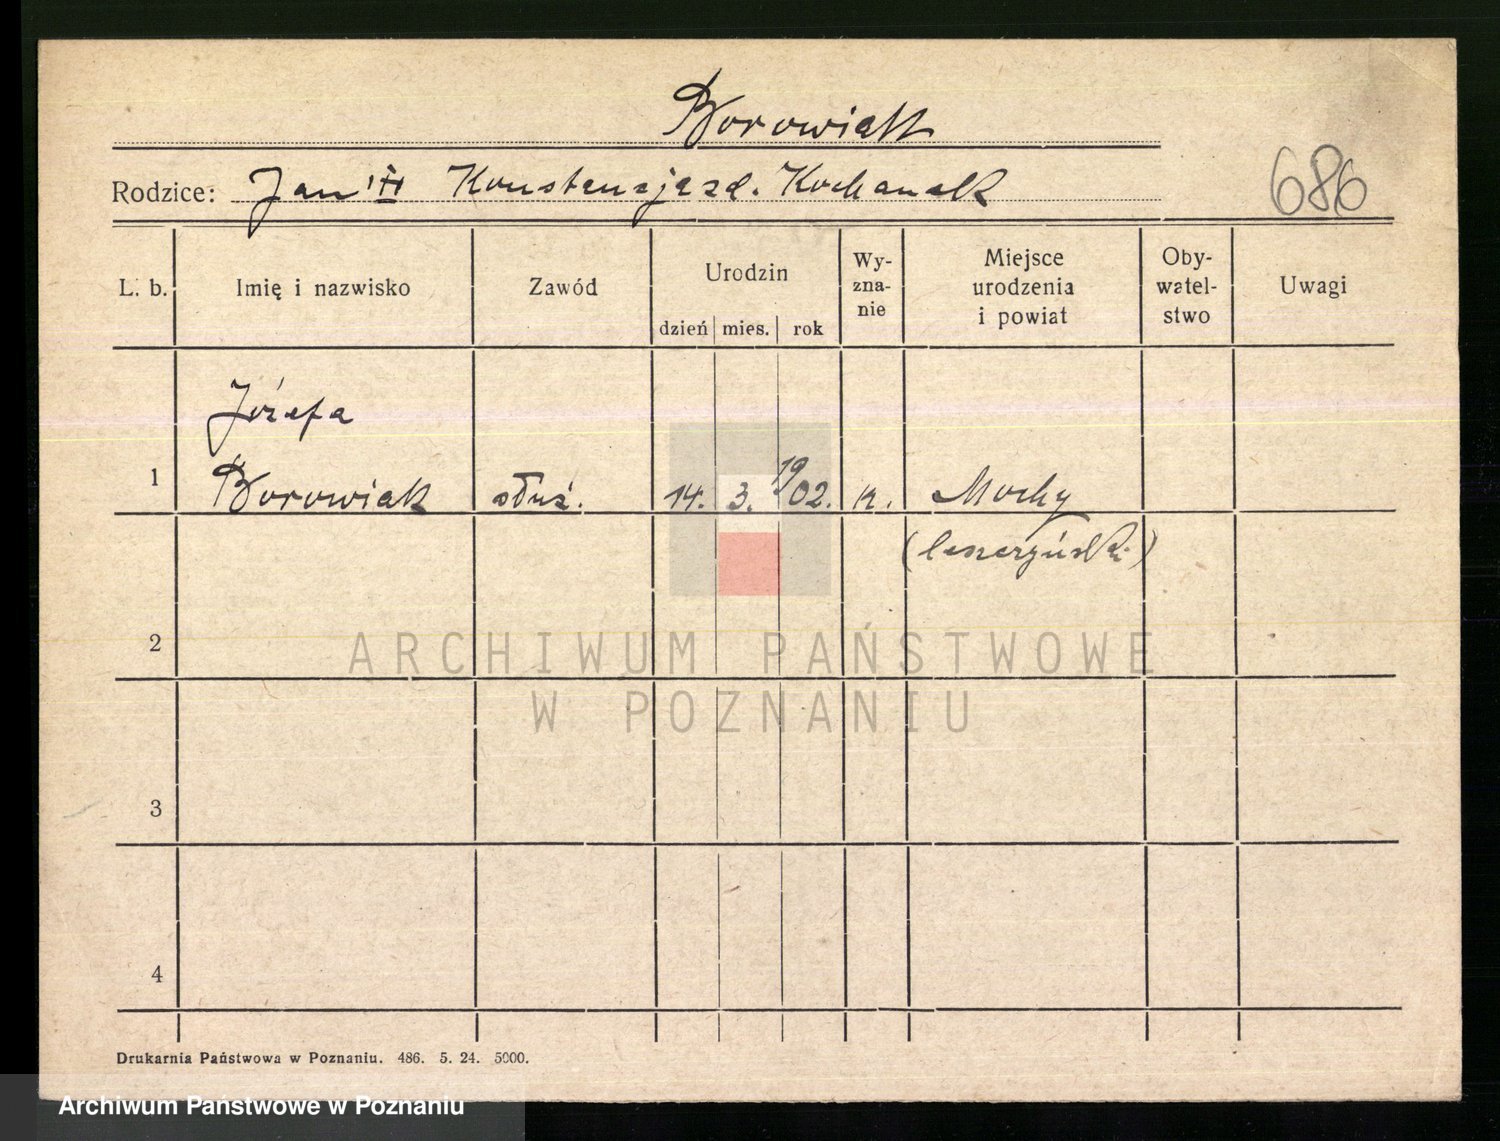 Borowiak
Rodzice: Jan i Konstancja zd. Kochanek
686
L. b. Imię i nazwisko Zawód Urodzin dzień mies. rok Wy-zna-nie Miejsce urodzenia i powiat Oby-watel-stwo Uwagi
Józefa
1 Borowiak służ. 14. 3. 1902. k. Mochy
(leszczyński)
2
ARCHIWUM PAŃSTWOWE
W POZNANIU
3
4
Drukarnia Państwowa w Poznaniu. 486. 5. 24. 5000.
Archiwum Państwowe w Poznaniu